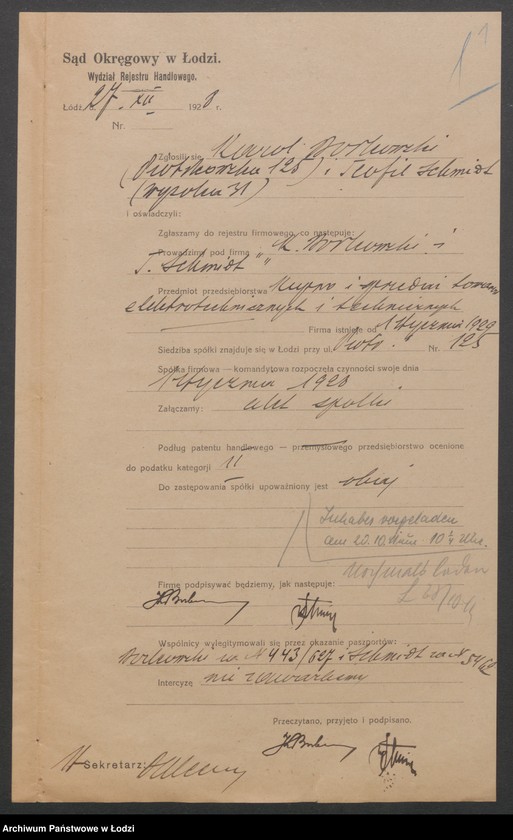 1
Sąd Okręgowy w Łodzi.
Wydział Rejestru Handlowego.
Łódź, d. 27. XII 1928 r.
Nr.
Zgłosili się Karol Borkowski
(Piotrkowska 125) i Teofil Schmidt
(Wysoka 31)
i oświadczyli:
Zgłaszamy do rejestru firmowego, co następuje:
Prowadzimy pod firmą „K. Borkowski i
T. Schmidt”
Przedmiot przedsiębiorstwa Kupno i sprzedaż towarów
elektrotechnicznych i technicznych
Firma istnieje od 1 stycznia 1929
Siedziba spółki znajduje się w Łodzi przy ul. Piotr. Nr. 125
Spółka firmowa — komandytowa rozpoczęła czynności swoje dnia
1 stycznia 1928
Załączamy: akt spółki
Podług patentu handlowego — przemysłowego przedsiębiorstwo ocenione
do podatku kategorji II
Do zastępowania spółki upoważniony jest obaj
Inhaber vorgeladen
am 20.10. 10 Uhr.
Firmę podpisywać będziemy, jak następuje:
Wspólnicy wylegitymowali się przez okazanie paszportów:
Borkowski za N 443/627 i Schmidt za
Intercyzę nie zawarliśmy
Przeczytano, przyjęto i podpisano.
Sekretarz:
Archiwum Państwowe w Łodzi